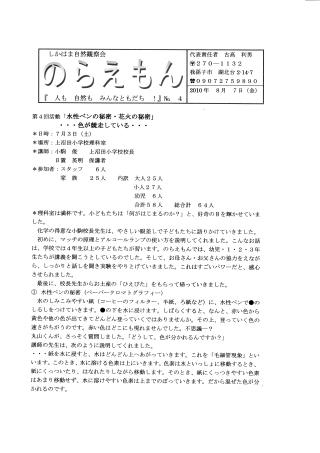 しかはま自然観察会
のらえもん
『 人も 自然も みんなともだち ！』No. 4
代表責任者 古高 利男
〒270－1132
我孫子市 湖北台 2-14-7
☎09072759890
2010年 8月 7日（金）
第4回活動「水性ペンの秘密・花火の秘密」
・・・色が競走している・・・
＊日時：7月3日（土）
＊場所：上沼田小学校理科室
＊講師：小駒 俊 上沼田小学校校長
日置 英明 保護者
＊参加者：スタッフ 6人
家族 25人 内訳 大人25人
小人27人
幼児 6人
合計58人 総合計 64人
＊理科室は満杯です。小どもたちは「何がはじまるのか？」と、好奇の目を輝かせていました。
化学の得意な小駒校長先生は、やさしい眼差しで子どもたちに語りかけていきました。
初めに、マッチの原理とアルコールランプの使い方を説明してくれました。こんなお話は、学校では4年生以上の子どもたちが習います。のらえもんでは、幼児・1・2・3年生たちが講義を聞こうとしているのです。そして、お母さん・お父さんの協力をえながら、しっかりと話しを聞き実験をやりとげていきました。これはすごいパワーだと、感心させられました。
最後に、校長先生からお土産の「ひえひた」をもらって帰っていきました。
① 水性ペンの秘密（ペーパークロマトグラフィー）
水のしみこみやすい紙（コーヒーのフィルター、半紙、ろ紙など）に、水性ペンで●のしるしをつけていきます。●の下を水に浸します。しばらくすると、なんと、赤い色から黄色や他の色が出てきてどんどん登っていくではありませんか。その上、登っていく色の速さがちがうのです。赤い色はどこにも現れませんでした。不思議～？
丸山くんが、さっそく質問しました。「どうして、色が分かれるんですか？」
講師の先生は、次のように説明してくれました。
・・・紙を水に浸すと、水はどんどん上へあがっていきます。これを「毛細管現象」といいます。このとき、水に溶ける色素は上にいきます。色素は水といっしょに移動するとき、紙にくっついたり、はなれたりしながら移動します。そのとき、紙にくっつきやすい色素はあまり移動せず、水に溶けやすい色素は上までのぼっていきます。だから混ぜた色が分かれるのです。